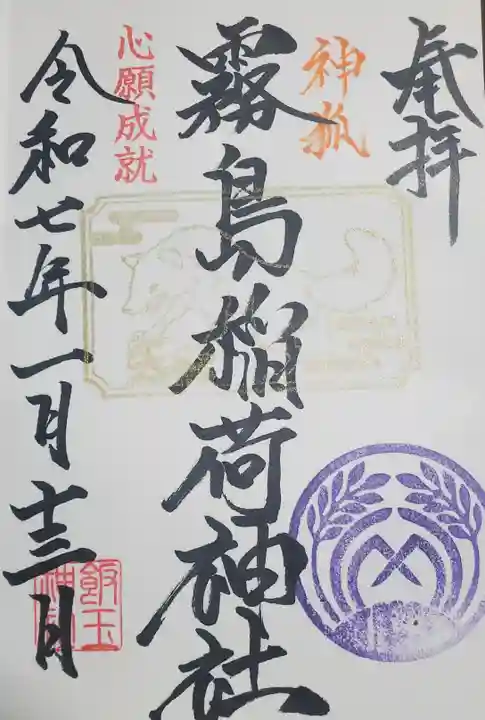 奉拝
神狐
霧島稲荷神社
心願成就
令和七年一月十三日
飯玉神社